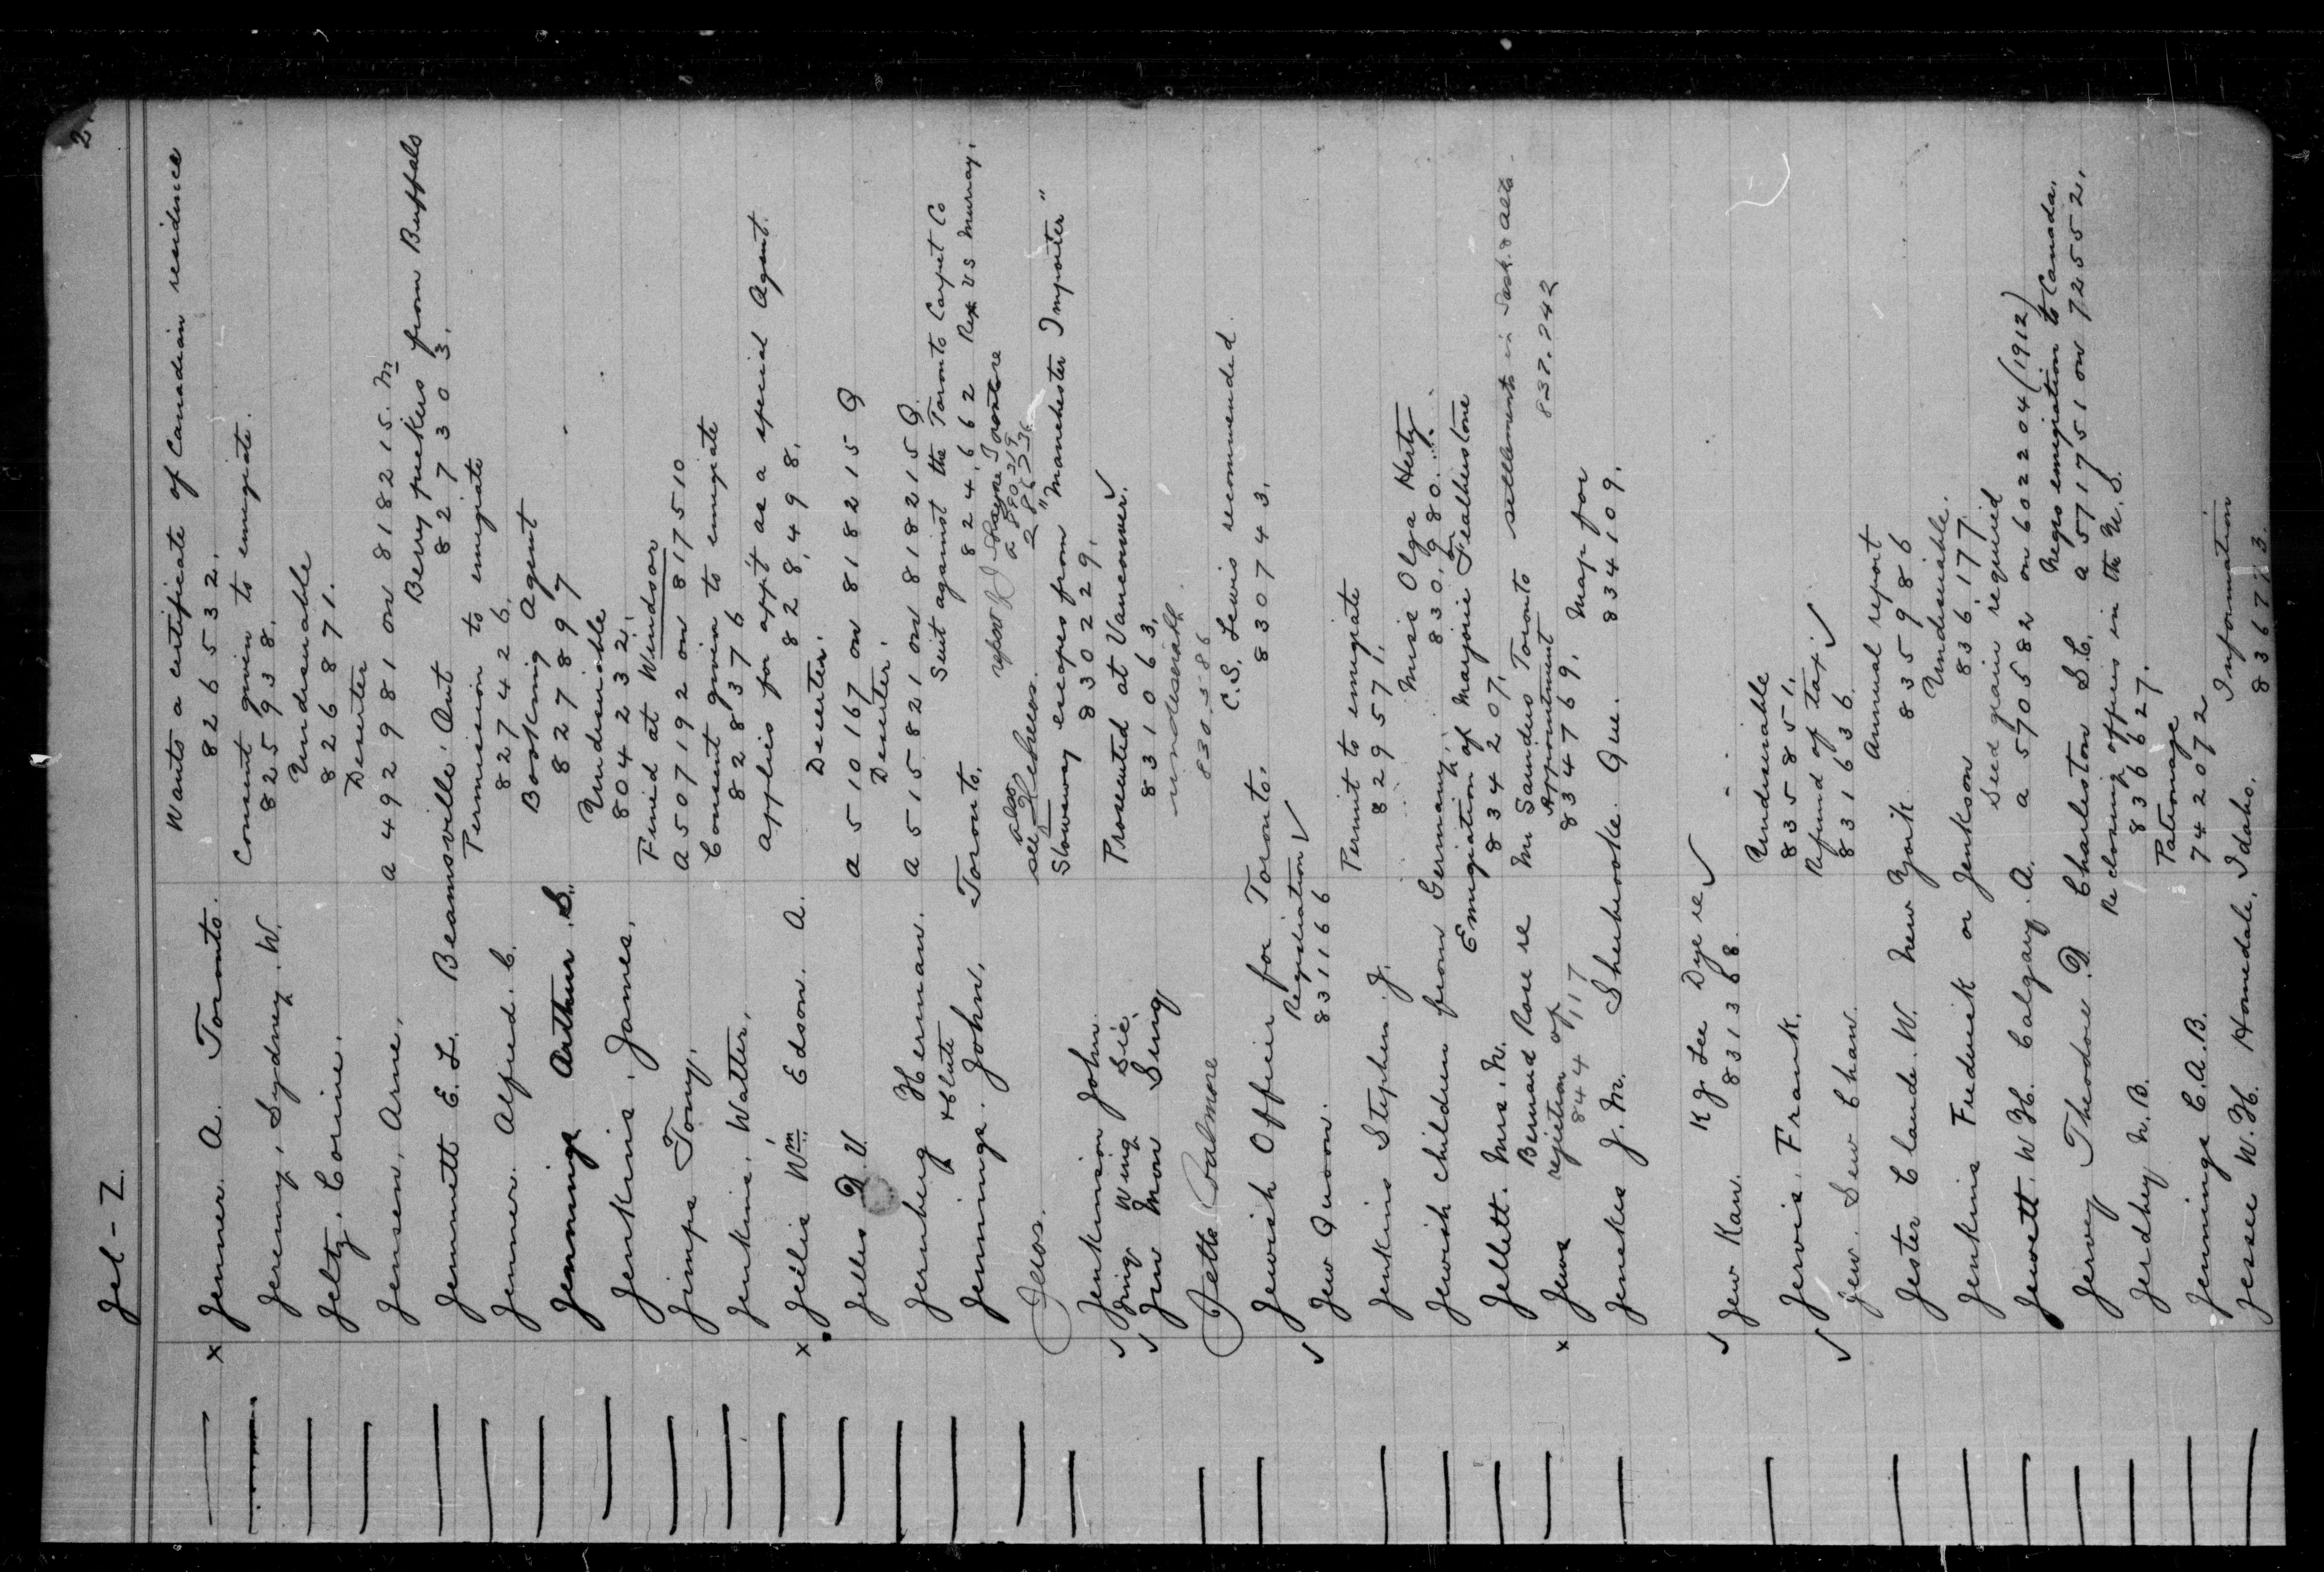 2.
Jel - Z.
x Jenner. A. Toronto. Wants a certificate of Canadian residence
826532.
Jeremy, Sydney. W. Consent given to emigrate.
825938.
Jeltz. Corine. Undesirable
826871.
Jensen, Arne. Deserter
a 492981 on 818215. M
Berry pickers from Buffalo
Jemmett E. L. Beamsville. Ont 827303.
Permission to emigrate
Jenner. Alfred. C. 827426.
Booking Agent
Jennings Arthur. S. 827897
Undesirable
Jenkins. James. 804232.
Fined at Windsor
Jimps Tony. a 507192 on 817510
Consent given to emigrate
Jenkins, Walter, 828376
applies for appt as a special Agent.
x Jellis Wm. Edson. A. 828,498.
Deserter.
Jelles D. V. a 510167 on 818215 Q
Deserter.
Jernberg Herman. a 515821 on 818215 Q.
& Clute Suit against the Toronto Carpet Co
Jennings. John, Toronto. 824,662 Rex vs Murray.
Jews. see also Hebrews.
Stowaway escapes from "Manchester Importer"
Jenkinson John. 830229.
✓ Jing Wing Sie. Prosecuted at Vancouver. ✓
✓ Jew Mon Sing 831063.
undesirable.
Jette 830,586
C.S. Lewis recommended.
Jewish Officer for Toronto. 830743.
Registration ✓
✓ Jew Quon. 831166
Permit to emigrate
Jenkins Stephen. J. 829571.
Miss Olga Herty
Jewish children from Germany. 830,980.
Emigration of Marjorie Featherstone
Jellett. Mrs. N. 834207.
Bernard Rose re Mr Saunders Toronto settlements in Sask. & Alta.
rejection of Appointment 837.242
x Jews 844,117 834769.
Map for
Jenckes J. M. Sherbrooke. Que. 834109.
K J Lee Dye re ✓
✓ Jew Kaw. 831368.
Undesirable
Jervis. Frank. 835851.
Refund of tax. ✓
✓ Jew. Sew Chaw. 831636.
Annual report
Jester Claude. W. New York 835986
Undesirable.
Jenkins Frederick or Jenkson 836,177
Seed grain required
Jewett. W H. Calgary. A. a 570582 on 602204 (1912)
Negro emigration to Canada.
Jervey Theodore. D. Charleston S.C. a 571751 on 72552.
Re closing offices in the U.S.
Jerdhey N. B. 836627.
Patronage
Jennings C.A.B. 742072
Information
Jesser W. H. Homedale, Idaho. 836773.